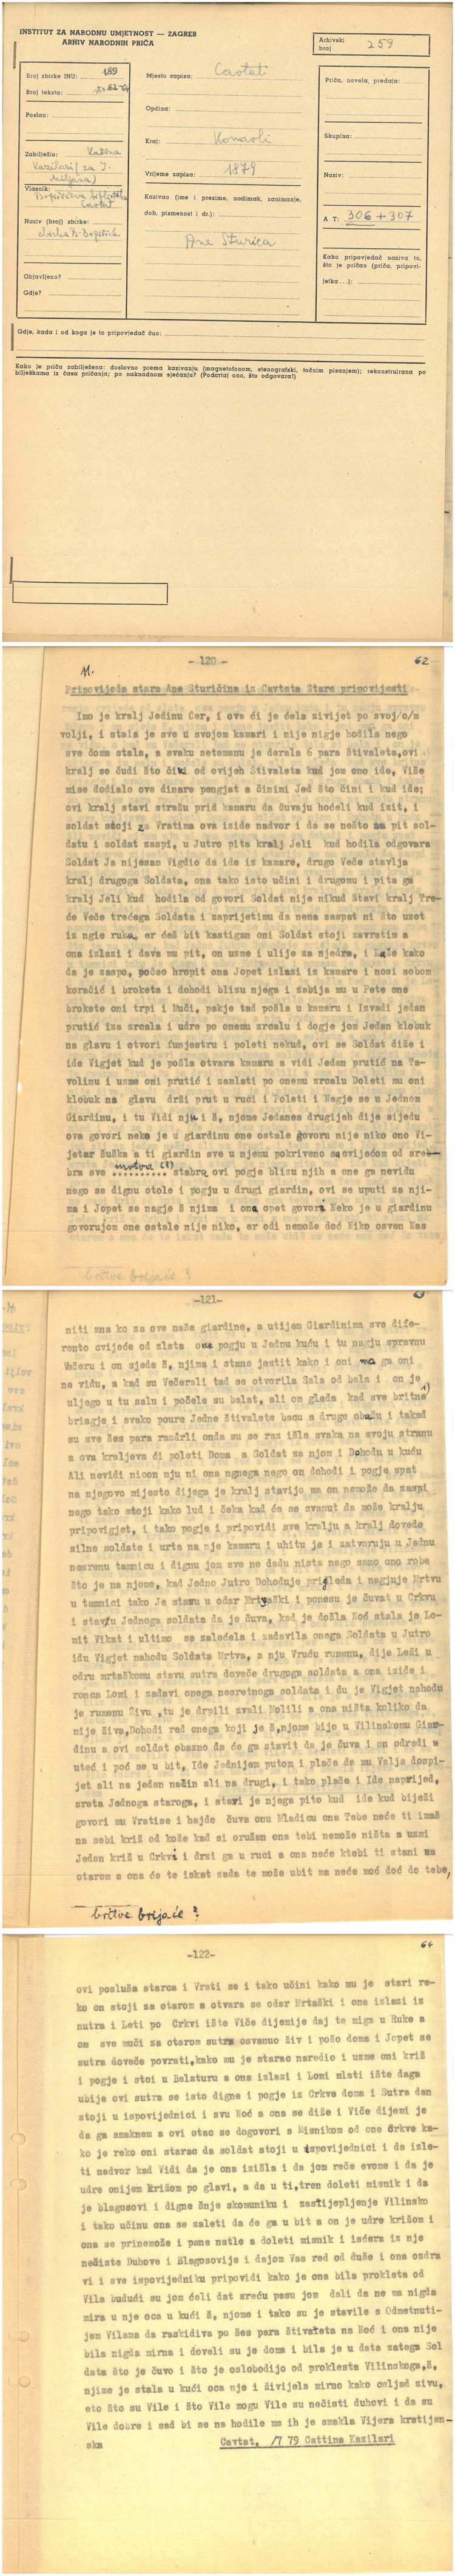 INSTITUT ZA NARODNU UMJETNOST — ZAGREB
ARHIV NARODNIH PRIČA
Arhivski
broj 259
Broj zbirke INU: 189
Broj teksta: str. 62-64
Poslao:
Zabilježio: Katina
Kazilari (za I.
Miljana)
Vlasnik:
Bogišićeva biblioteka
Cavtat
Naziv (broj) zbirke:
zbirka B. Bogišića
Objavljeno?
Gdje?
Mjesto zapisa: Cavtat
Općina:
Kraj: Konavli
Vrijeme zapisa: 1879
Kazivao (ime i prezime, nadimak, zanimanje,
dob, pismenost i dr.):
Ane Sturica
Priča, novela, predaja:
Skupina:
Naziv:
A T: 306 + 307
Kako pripovjedač naziva to,
što je pričao (priča, pripovi-
jetka ...):
Gdje, kada i od koga je to pripovjedač čuo:
Kako je priča zabilježena: doslovno prema kazivanju (magnetofonom, stenografski, točnim pisanjem); rekonstruirana po
bilješkama iz časa pričanja; po naknadnom sjećanju? (Podcrtaj ono, što odgovara!)
- 120 -
62
11.
Pripovijeda stara Ane Sturičina iz Cavtata Stare pripovijesti
Imo je kralj Jedinu Ćer, i ova ći je ćela živijet po svoj/o/m
volji, i stala je sve u svojom kamari i nije nigje hodila nego
sve doma stala, a svaku setemanu je derala 6 para štivaleta,ovi
kralj se čudi što čini od ovijeh Štivaleta kud jom ono ide, Više
mise dodialo ove dinare pengjat a činimi Jed što čini i kud ide;
ovi kralj stavi stražu prid kamaru da čuvaju hoćeli kud izit, i
soldat stoji z Vratima ova iziđe nadvor i da se nešto na pit sol-
datu i soldat zaspi, u Jutro pita kralj Jeli kud hodila odgovara
Soldat Ja nijesam Vigdio da ide iz kamare, drugo Veče stavlja
kralj drugoga Soldata, ona tako isto učini i drugomu i pita ga
kralj Jeli kud hodila od govori Soldat nije nikud Stavi kralj Tre-
će Veče trećega Soldata i zaprijetimu da nema zaspat ni što uzet
iz ngie ruka, er ćeš bit kastigan oni Soldat stoji zavratim a
ona izlazi i dava mu pit, on uzme i ulije za njedra, i Laže kako
da je zaspo, počeo hropit ona Jopet izlazi iz kamare i nosi sobom
koračić i broketa i dohodi blizu njega i zabija mu u Pete one
brokete oni trpi i Muči, pakje tad pošla u kamaru i Izvadi jedan
prutić iza zrcala i udre po onemu zrcalu i dogje jom Jedan klobuk
na glavu i otvori funjestru i poleti nekud, ovi se Soldat diše i
ide Vigjet kud je pošla otvara kamaru a vidi Jedan prutić na Ta-
volinu i uzme oni prutić i zamlati po onemu zrcalu Doleti mu oni
klobuk na glavu drži prut u ruci i Poleti i Nagje se u Jednom
Giardinu, i tu Vidi nju i š, njome Jedanes drugijeh dije sijedu
ova govori neko je u giardinu one ostale govoru nije niko ono Vi-
jetar šuška a ti giardin sve u njemu pokriveno sa cvijećom od sre
bra sve motva (?) stabro ovi pogje blizu njih a one ga nevidu
nego se dignu otole i pogju u drugi giardin, ovi se uputi za nji-
ma i Jopet se nagje š njima i ona opet govori Neko je u giardinu
govorujom one ostale nije niko, er odi nemože doć Niko osven Nas
britve brijaće ?
-121-
63
niti zna ko za ove naše giardine, a utijem Giardinima sve dife-
rento cvijeće od zlata one pogju u Jednu kuću i tu nagju spravnu
Večeru i on sjede š, njima i stane jestit kako i oni ma ga oni
ne vidu, a kad su Večerali tad se otvorila Sala od bala i on je
uljego u tu salu i počele su balat, ali on gleda kad sve britne 1)
briagje i svako poure Jedne štivalete bacu a druge obužu i takad
su sve šes para razdrli onda su se ras išle svaka na svoju stranu
a ova kraljeva ći poleti Doma a Soldat za njom i Dohodu u kuću
Ali nevidi nioon nju ni ona ngnega nego on dohodi i pogje spat
na njagovo mijesto dijega je kralj stavijo ma on nemože da zaspi
nego tako stoji kako lud i čeka kad će se svanut da može kralju
pripovigjet, i tako pogje i pripovidi sve kralju a kralj dovede
silne soldate i urta na nje kamaru i uhitu je i zatvoruju u Jednu
nesrenu tamnicu i dignu jom sve ne dadu nista nego samo ono robe
što je na njome, kad Jedno Jutro Dohoduje prigleda i nagjuje Mrtvu
u tamnici tako Je stavu u odar Mrtvaški i ponesu je čuvat u Crkvu
i stavu Jednoga soldata da je čuva, kad je došla Noć stala je Lo-
mit Vikat i ultimo se zalećela i zadavila onega Soldata u Jutro
idu Vigjet nahodu Soldata Mrtva, a nju Vruću rumenu, dije Leži u
odru mrtaškomu stavu sutra doveče drugoga soldata a ona iziđe i
ronca Lomi i zadavi onega nesretnoga soldata i du je Vigjet nahodu
je rumenu Živu ,tu je drpili zvali Molili a ona ništa koliko da
nije živa,Dohodi red onega koji je š,njome bijo u Vilinskomu Giar-
dinu a ovi soldat obazno da će ga stavit da je čuva i on odredi u
uteć i pod se u bit, Ide Jednijem putom i plače da mu Valja dospi-
jet ali na jedan način ali na drugi, i tako plače i Ide naprijed,
sreta Jednoga staroga, i stari je njega pito kud ide kud biježi
govori mu Vratise i hajde čuva onu Mladicu ona Tebe neće ti imaš
na sebi križ od kože kad si oružan ona tebi nemože ništa a uzmi
Jedan križ u Crkvi i drzi ga u ruci a ona neće ktebi ti stani za
otarom a ona će te iskat sada te može ubit ma neće moć doć do tebe,
britve brijaće ?
-122-
64
ovi posluša starca i Vrati se i tako učini kako mu je stari re-
ko on stoji za otarom a otvara se odar Mrtaški i ona izlazi iz
nutra i Leti po Crkvi ište Viče dijemije daj te miga u Ruke a
on sve muči za otarom sutra osvanuo živ i pošo doma i Jopet se
sutra doveče povrati,kako mu je starac naredio i uzme oni križ
i pogje i stoi u Balaturu a ona izlazi i Lomi mlati ište daga
ubije ovi sutra se isto digne i pogje iz Crkve doma i Sutra dan
stoji u ispovijednici i svu Noć a ona se diže i Viče dijemi je
da ga smaknem a ovi otac se dogovori s Misnikom od one Crkve ka-
ko je reko oni starac da soldat stoji u ispovijednici i da izle-
ti nadvor kad Vidi da je ona izišla i da jom reče evome i da je
udre onijem križom po glavi, a da u ti,tren doleti misnik i da
je blagosovi i digne šnje skomuniku i zastijepljenje Vilinsko
i tako učinu ona se zaleti da će ga u bit a on je udre križom i
ona se prinemože i pane natle a doleti misnik i isćera iz nje
nečiste Duhove i Blagosovije i dajom Vas red od duše i ona ozdra
vi i sve ispovijedniku pripovidi kako je ona bila prokleta od
Vila budući su jom ćeli dat sreću pasu jom dali da ne ma nigda
mira u nje oca u kući š, njome i tako su je stavile s Odmetnuti-
jem Vilama da raskidiva po šes para štivaleta na Noć i ona nije
bila nigda mirna i doveli su je doma i bila je u data zatega Sol
data što je čuvo i što je oslobodijo od proklesta Vilinskoga,š,
njime je stala u kući oca nje i živijela mirno kako celjad zivu,
eto što su Vile i što Vile mogu Vile su nečisti duhovi i da su
Vile dobre i sad bi se na hodile ma ih je smakla Vijera krstijan-
ska
Cavtat, /7 79 Cattina Kazilari